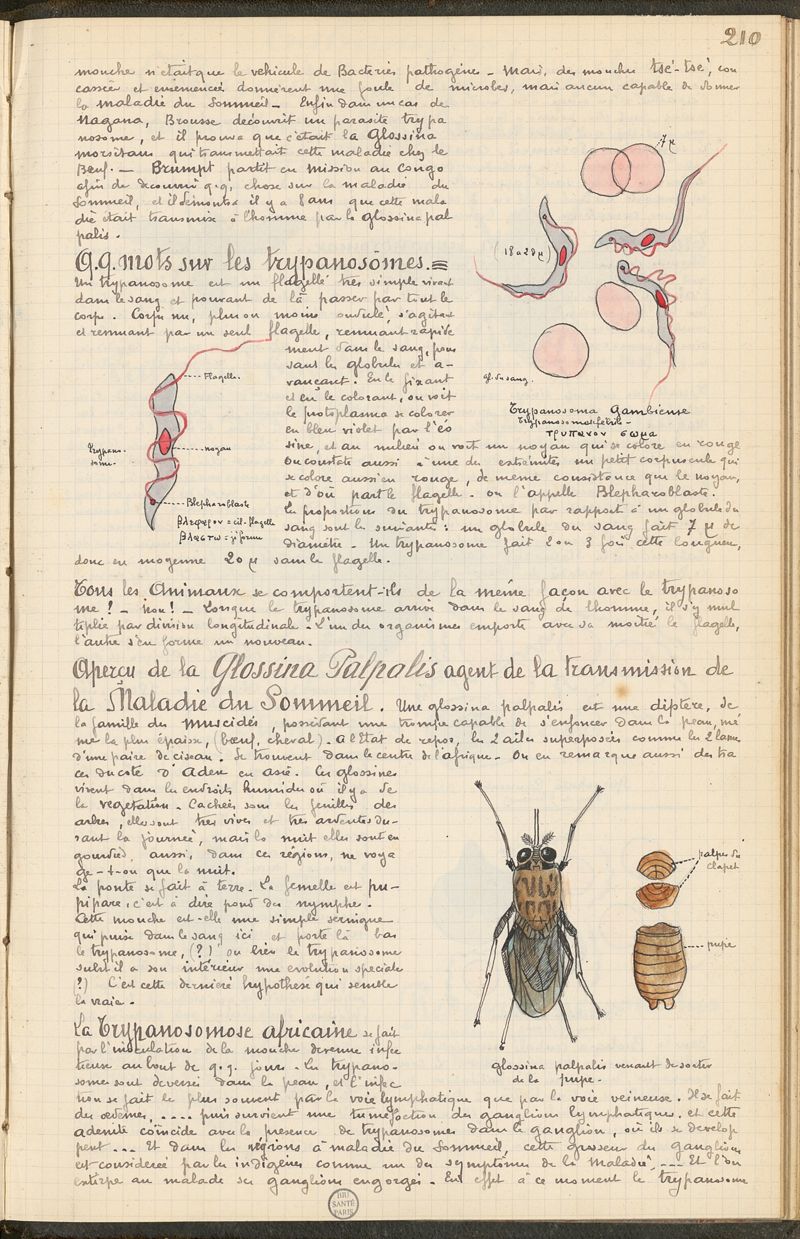 210
mouche n'était que le vehicule de Bacteries pathogènes - Mais, des mouches tsé-tsé, con
cassées et ensemencées donnèrent une foule de microbes, mais aucun capable de donner
la maladie du Sommeil - Enfin dans un cas de
Nagana, Brousse decouvrit un parasite trypa
nosome, et il prouva que c'était la Glossina
morsitans qui transmettait cette maladie chez le
Bœuf. - Brumpt partit en mission au Congo
afin de decouvrir q.q. chose sur la maladie du
Sommeil, et il démontra il y a 8 ans que cette mala
die était transmise à l'homme par la glossina pal
palis.
7 µ
(18 à 28 µ)
gl. du sang.
Trypanosoma Gambiense
Trypanosoma
τρυπανον σωμα
Q.q. mots sur les trypanosômes.
Un trypanosome est un flagellé très simple vivant
dans le sang et pouvant de là passer par tout le
corps. Corps nu, plus ou moins ondulé, s'agitant
et remuant par un seul flagelle, remuant rapide
ment dans le sang, pous
sant les globules et a-
vançant. En le fixant
et en le colorant, on voit
le protoplasma se colorer
en bleu violet par l'éo
sine, et au milieu on voit un noyau qui se colore en rouge
On constate aussi à une des extrémités un petit corpuscule qui
se colore aussi en rouge, de meme consistance que le noyau,
et d'où part le flagelle. on l'appelle Blepharoblaste.
La proportion du trypanosome par rapport à un globule du
sang sont les suivantes: un globule du sang fait 7 µ de
diamètre. Un trypanosome fait 2 ou 3 fois cette longueur,
donc en moyenne 20 µ sans le flagelle.
Flagelle.
Trypano-
some.
noyau
Blepharoblaste
βλεφαρον = cil-flagelle
βλαστω = je forme
Tous les Animaux se comportent-ils de la même façon avec le trypanoso
me? - Non! - Lorsque le trypanosome arrive dans le sang de l'homme, il s'y mul
tiplie par division longitudinale. L'un des organismes emporte avec sa moitié le flagelle,
l'autre s'en forme un nouveau.
Aperçu de la Glossina Palpalis agent de la transmission de
la Maladie du Sommeil. Une glossina palpalis est une diptère, de
la famille des muscidés, possédant une trompe capable de s'enfoncer dans la peau, mê
me la plus épaisse, (bœuf, cheval). A l'Etat de repos, les 2 ailes superposées comme les 2 lames
d'une paire de ciseau. Se trouvent dans le centre de l'afrique. On en remarque aussi des tra
ces du coté d'Aden en asie. Ces glossines
vivent dans les endroits humides où il y a de
la vegetation. Cachées sous les feuilles des
arbres, elles sont très vives et très ardentes du-
rant la journée, mais la nuit elles sont en
gourdies, aussi, dans ces régions, ne voya
ge-t-on que la nuit.
La ponte se fait à terre. La femelle est pu-
pipare, c'est à dire pond des nymphe.
Cette mouche est-elle une simple seringue
qui puise dans le sang ici et porte là bas
le trypanosome, (?) ou bien le trypanosome
subit il a son intérieur une evolution speciale
?) C'est cette dernière hypothèse qui semble
la vraie.
palpes du
clapet
pupe
glossina palpalis venant de sortir
de la pupe.
La Trypanosomose africaine se fait
par l'inoculation de la mouche devenue infec
tieuse au bout de q.q. jours. Les trypano-
somes sont deversés dans la peau, et l'infec
tion se fait le plus souvent par la voie lymphatique que par la voie veineuse. Il se fait
des œdèmes, .... puis survient une tumefaction des ganglions lymphatiques. et cette
adenite coïncide avec la presence de trypanosomes dans le ganglion, où ils se develop
pent ... Et dans les régions à maladie du Sommeil, cette grosseur des ganglions
est considerée par les indigènes comme un des symptômes de la maladie, ... Et l'on
extirpe au malade ses ganglions engorgés. En effet à ce moment le trypanosome
BIU
SANTÉ
PARIS